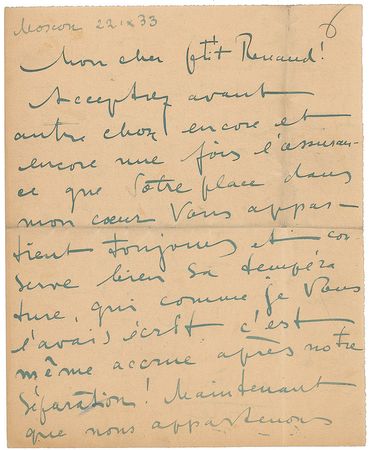 Moscou 22 IX 33
6
Mon cher ptit Renaud!
Acceptez avant
autre chose encore et
encore une fois l'assuran-
ce que Votre place dans
mon cœur Vous appar-
tient toujours et con-
serve bien sa tempéra
ture, qui comme je Vous
l'avais écrit c'est
même accrue après notre
séparation! Maintenant
que nous appartenons